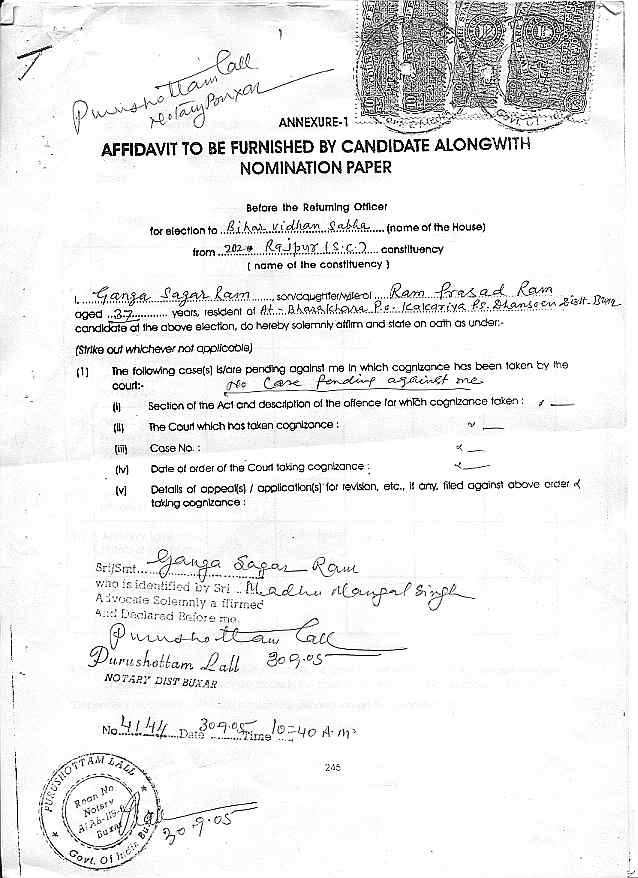 Purushottam Lall
Notary Buxar
ANNEXURE-1
AFFIDAVIT TO BE FURNISHED BY CANDIDATE ALONGWITH
NOMINATION PAPER
Before the Returning Officer
for election to Bihar Vidhan Sabha (name of the House)
from 202 Rajpur (S.C.) constituency
( name of the constituency )
I, Ganga Sagar Ram, son/daughter/wife of Ram Prasad Ram
aged 37 years, resident of At - Bharakhara Po. Kakariya Ps. Dhansoin Distt- Buxar
candidate at the above election, do hereby solemnly affirm and state on oath as under:-
(Strike out whichever not applicable)
(1) The following case(s) is/are pending against me in which cognizance has been taken by the
court:- No Case Pending against me
(i) Section of the Act and description of the offence for which cognizance taken :
(ii) The Court which has taken cognizance :
(iii) Case No. :
(iv) Date of order of the Court taking cognizance :
(v) Details of appeal(s) / application(s) for revision, etc., if any, filed against above order
taking cognizance :
Sri/Smt. Ganga Sagar Ram
who is identified by Sri Madhu Mangal Singh
Advocate Solemnly affirmed
And Declared Before me.
Purushottam Lall
Purushottam Lall 30.9.05
NOTARY DIST BUXAR
No. 4144 Date 30.9.05 Time 10=40 A.M.
245
PURUSHOTTAM LALL
Notary
Buxar
Govt. Of India
30.9.05